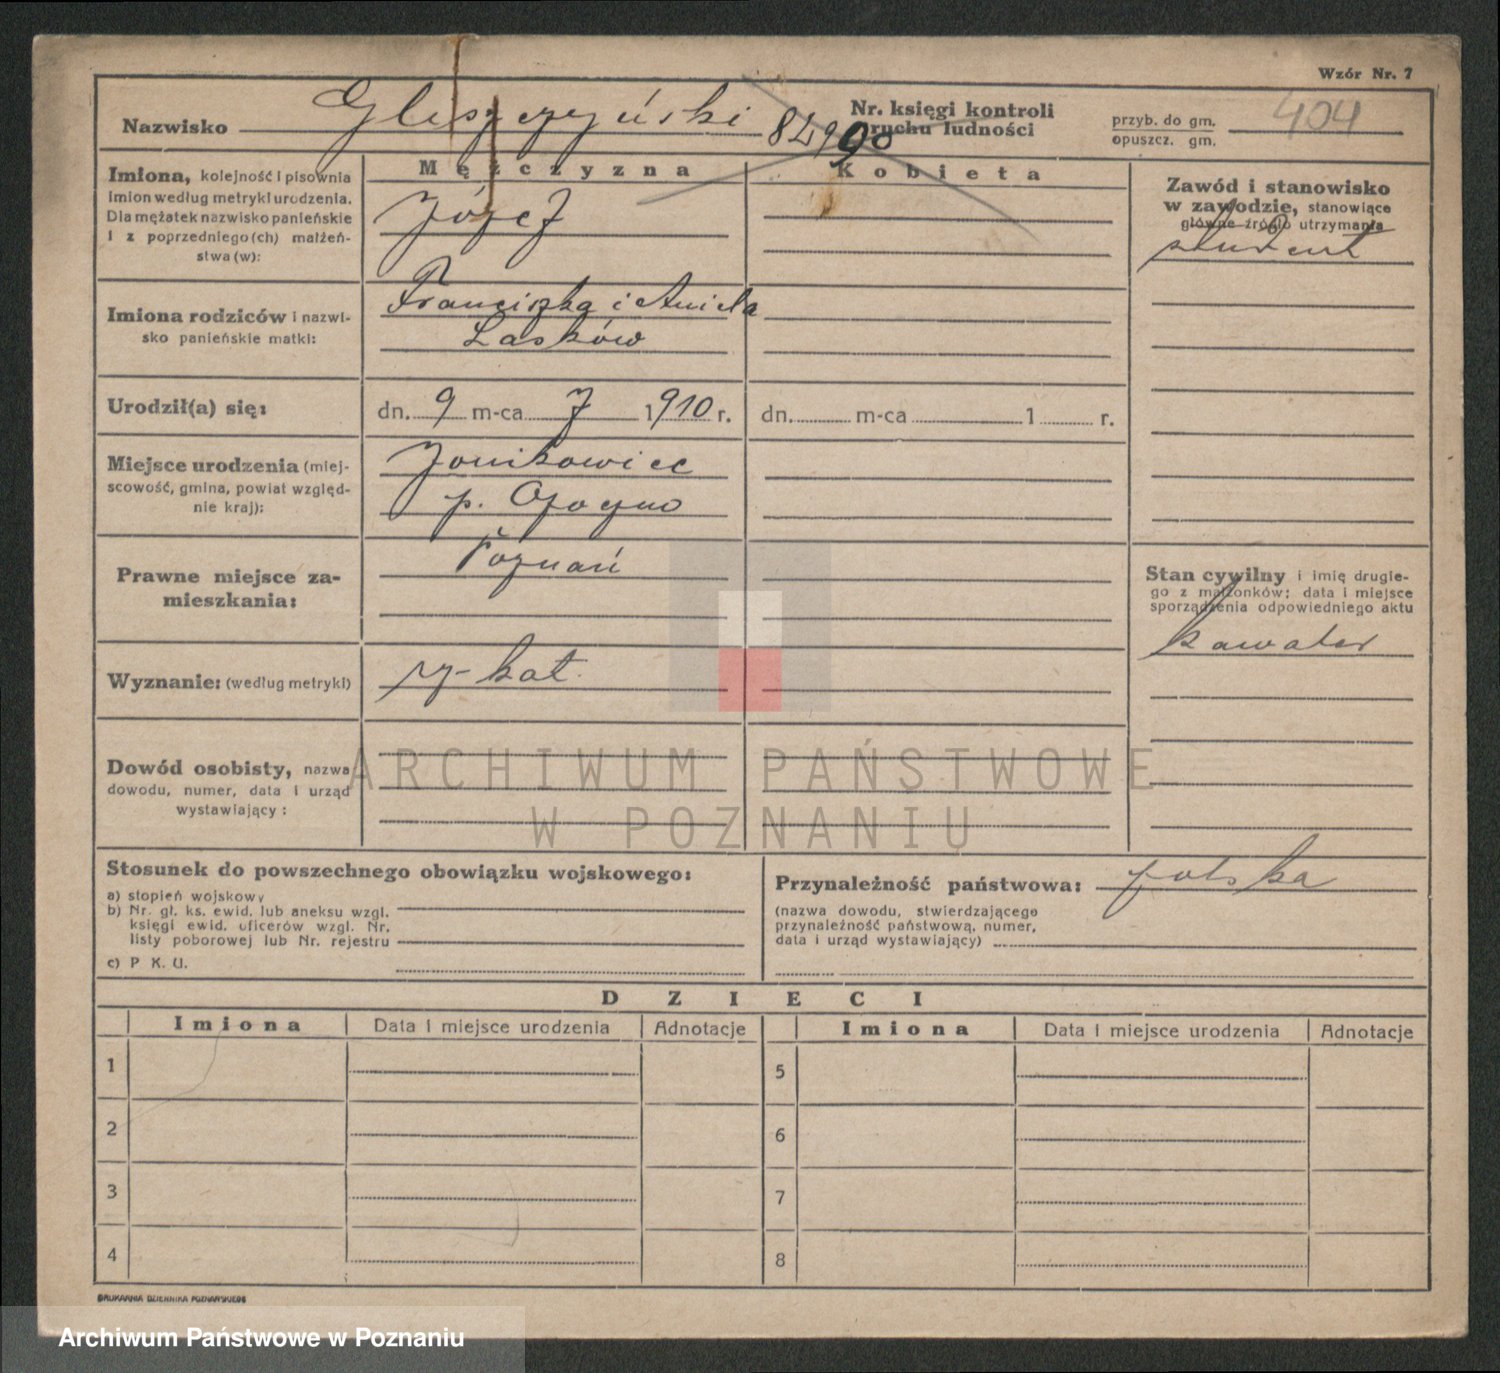 Wzór Nr. 7
Nazwisko Gleszczyński 84990
Nr. księgi kontroli
ruchu ludności
przyb. do gm.
opuszcz. gm.
404
Imiona, kolejność i pisownia
imion według metryki urodzenia.
Dla mężatek nazwisko panieńskie
i z poprzedniego(ch) małżeń-
stwa(w):
Mężczyzna
Józef
Kobieta
Zawód i stanowisko
w zawodzie, stanowiące
główne źródło utrzymania
student
Imiona rodziców i nazwi-
sko panieńskie matki:
Franciszka i Aniela
Lasków
Urodził(a) się:
dn. 9 m-ca 7 1910 r.
dn. m-ca 1 r.
Miejsce urodzenia (miej-
scowość, gmina, powiat względ-
nie kraj):
p. Opoczno
Prawne miejsce za-
mieszkania:
Poznań
Stan cywilny i imię drugie-
go z małżonków; data i miejsce
sporządzenia odpowiedniego aktu
kawaler
Wyznanie: (według metryki)
rz-kat.
Dowód osobisty, nazwa
dowodu, numer, data i urząd
wystawiający:
ARCHIWUM PAŃSTWOWE
W POZNANIU
Stosunek do powszechnego obowiązku wojskowego:
a) stopień wojskowy
b) Nr. gł. ks. ewid. lub aneksu wzgl.
księgi ewid. oficerów wzgl. Nr.
listy poborowej lub Nr. rejestru
c) P. K. U.
Przynależność państwowa: polska
(nazwa dowodu, stwierdzającego
przynależność państwową, numer,
data i urząd wystawiający)
DZIECI
Imiona Data i miejsce urodzenia Adnotacje Imiona Data i miejsce urodzenia Adnotacje
1 5
2 6
3 7
4 8
DRUKARNIA DZIENNIKA POZNAŃSKIEGO
Archiwum Państwowe w Poznaniu